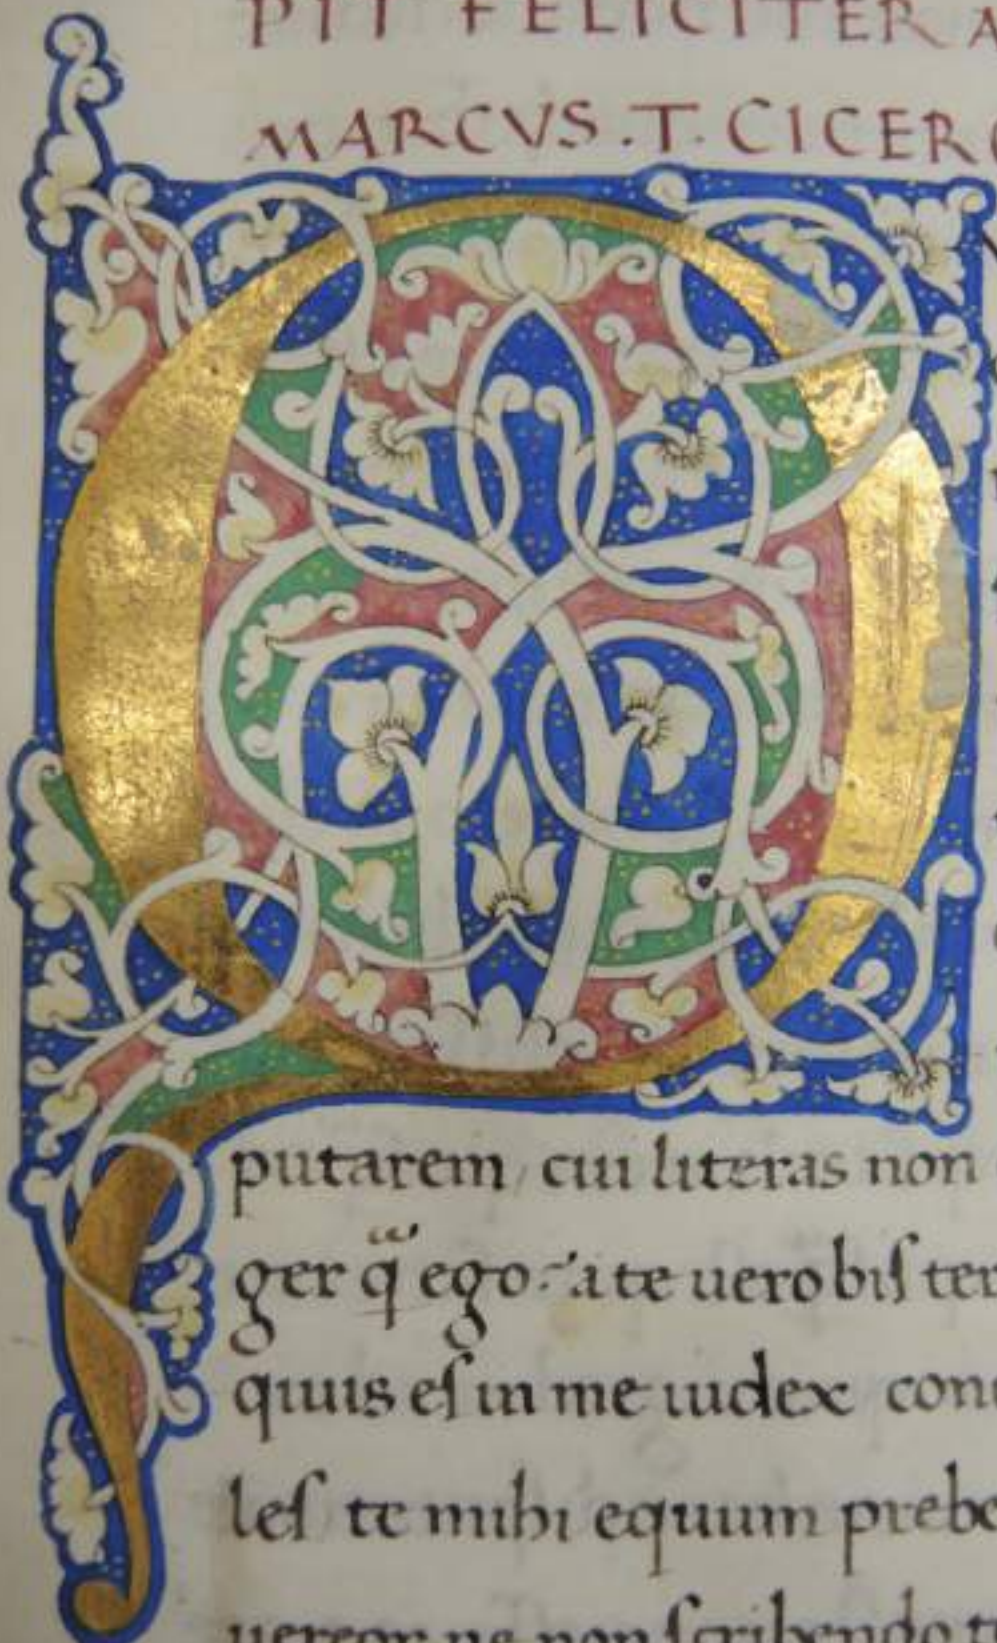 PIT FELICITER A
MARCVS . T. CICERO
Q
putarem cui literas non
ger q̃ ego: a te uero biſ ter
quuis eſ in me iudex con
leſ te mihi equum prebe
uereor ne non ſcribendo t